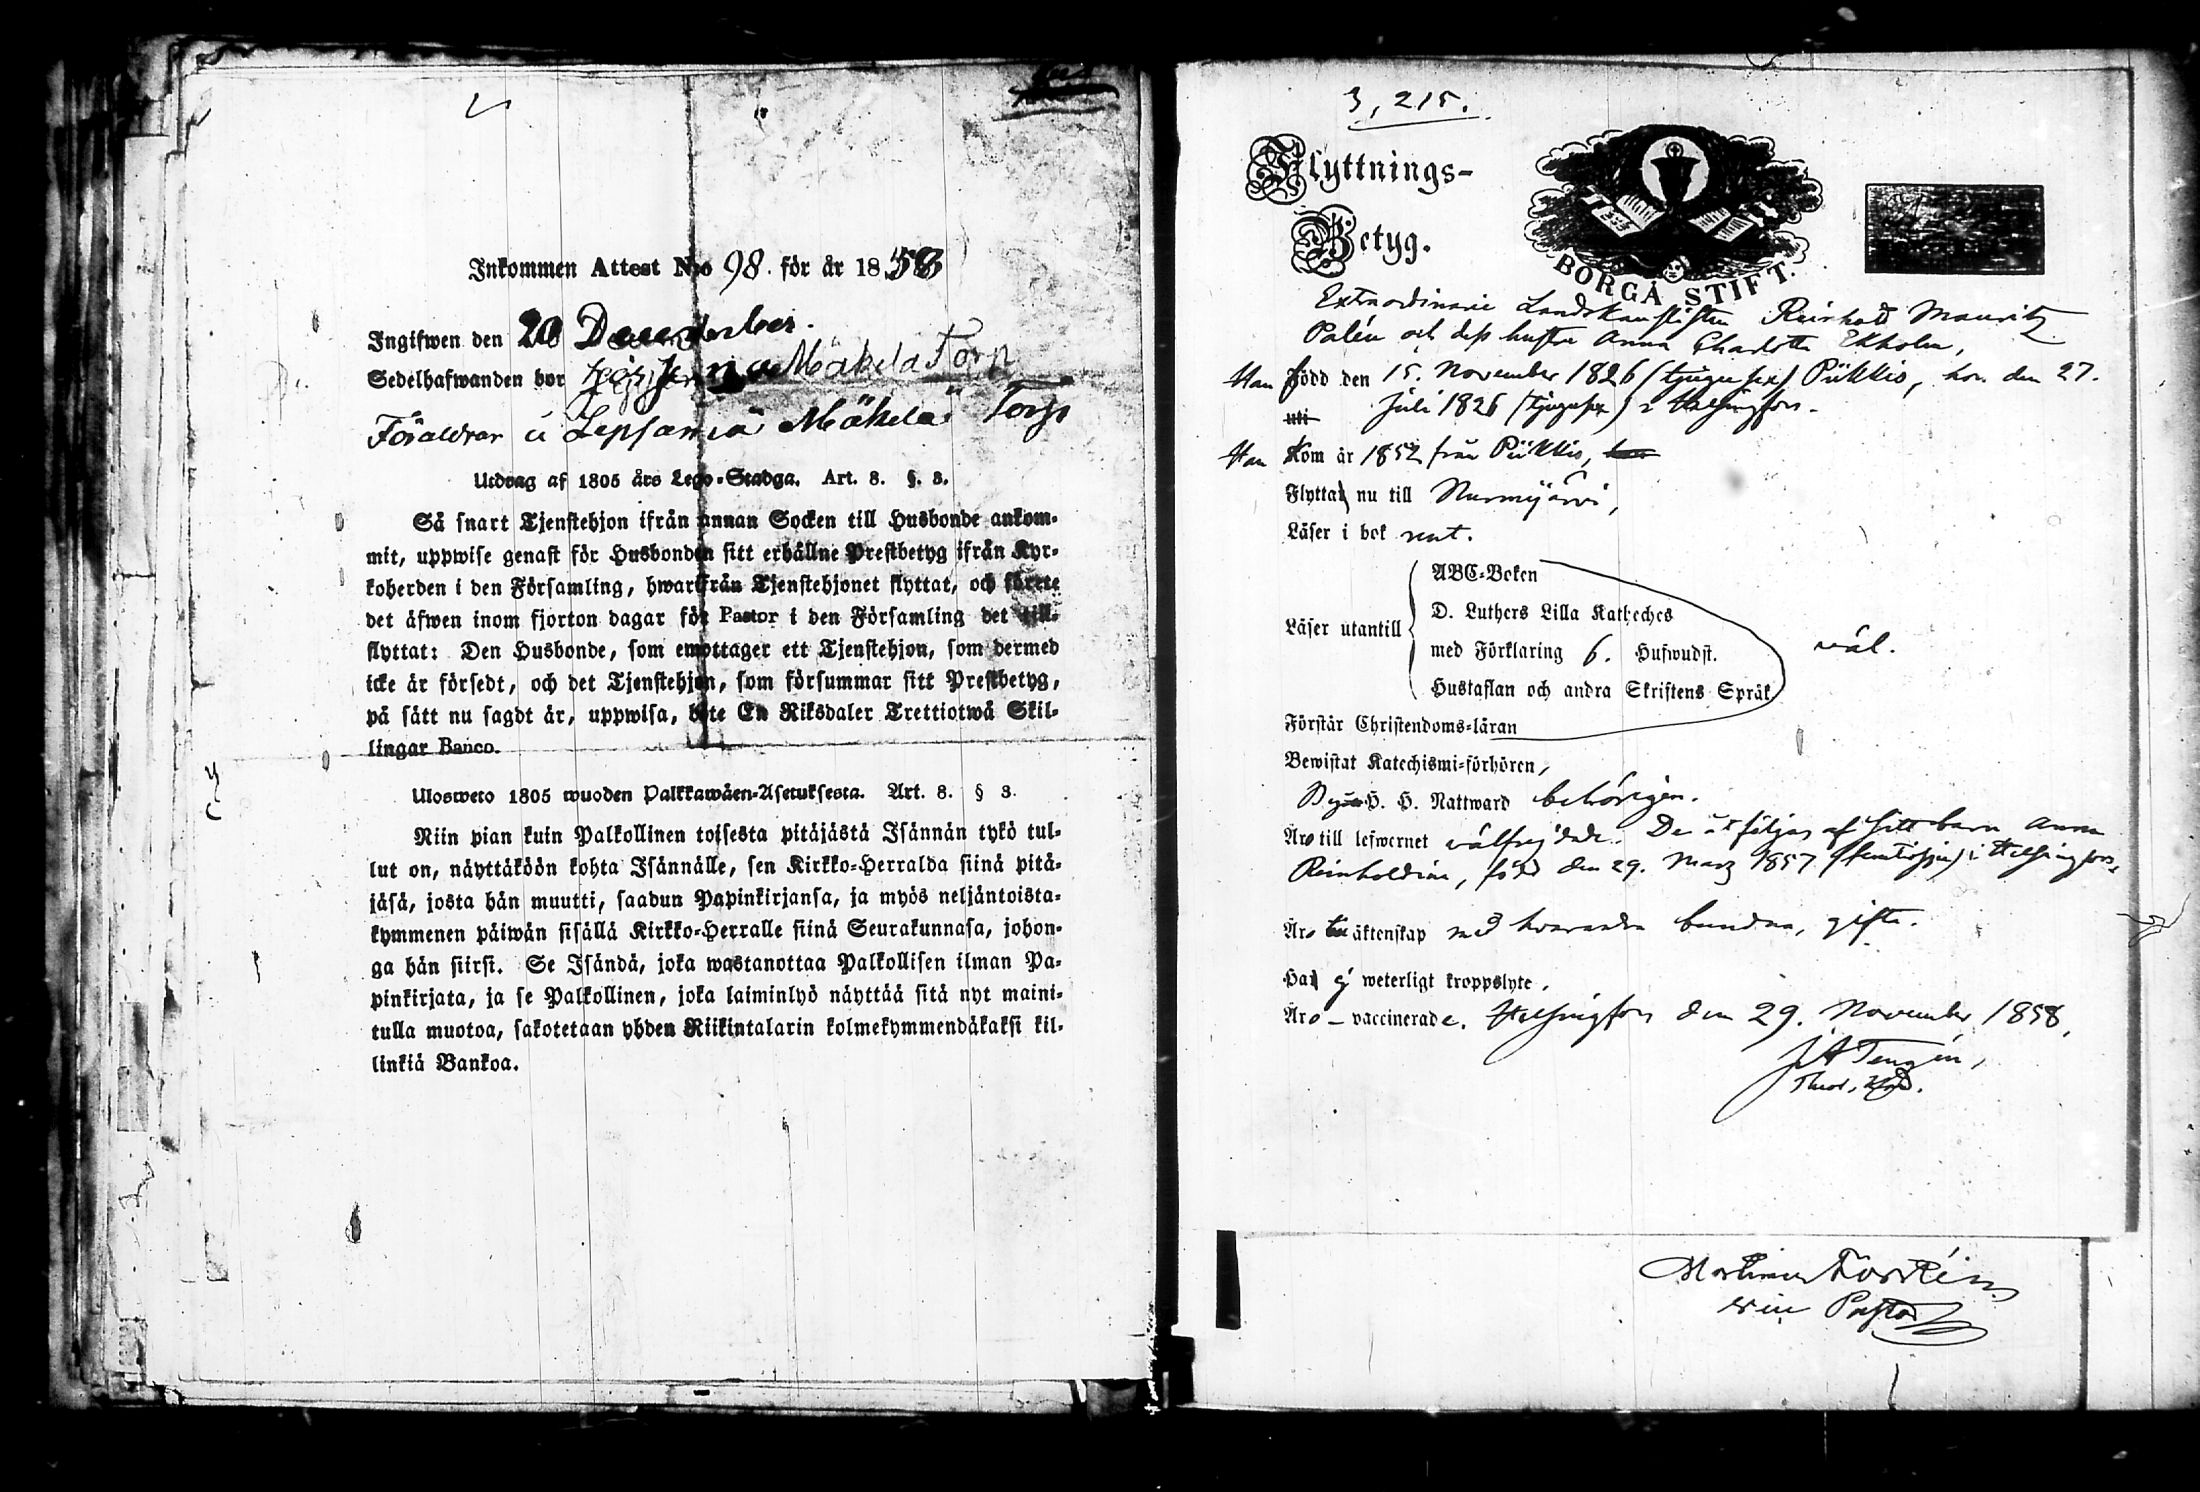 Inkommen Attest No 98. för år 1858
Ingifwen den 20 December.
Sedelhafwanden bor Mäkelä Torp
Föräldrar i Lepsämä Mäkelä Torp
Utdrag af 1805 års Lego-Stadga. Art. 8. §. 3.
Så snart Tjenstehjon ifrån annan Socken till Husbonde ankom-
mit, uppwise genast för Husbonden sitt erhållne Prestbetyg ifrån Kyr-
koherden i den Församling, hwarifrån Tjenstehjonet flyttat, och förete
det äfwen inom fjorton dagar för Pastor i den Församling det till-
flyttat: Den Husbonde, som emottager ett Tjenstehjon, som dermed
icke är försedt, och det Tjenstehjon, som försummar sitt Prestbetyg,
på sätt nu sagdt är, uppwisa, böte En Riksdaler Trettiotwå Skil-
lingar Banco.
Ulosweto 1805 wuoden Palkkawäen-Asetuksesta. Art. 8. § 3.
Niin pian kuin Palkollinen toisesta pitäjästä Isännän tykö tul-
lut on, näyttäköön kohta Isännälle, sen Kirkko-Herralda siinä pitä-
jäsä, josta hän muutti, saadun Papinkirjansa, ja myös neljäntoista-
kymmenen päiwän sisällä Kirkko-Herralle siinä Seurakunnasa, johon-
ga hän siirsi. Se Isändä, joka wastanottaa Palkollisen ilman Pa-
pinkirjata, ja se Palkollinen, joka laiminlyö näyttää sitä nyt maini-
tulla muotoa, sakotetaan yhden Riikintalarin kolmekymmendäkaksi kil-
linkiä Bankoa.
3,215.
Flyttnings-
Betyg.
BORGÅ STIFT.
Extraordinarie Landskanslisten Reinhold Mauritz
Palén och dess hustru Anna Charlotta Ekholm,
Han Född den 15. November 1826 (tjugusex) Piikkis, hon den 27.
uti Juli 1826 (tjugusex) i Helsingfors.
Han Kom år 1852 från Piikkis, hon
Flytta nu till Nurmijärvi,
Läser i bok rent.
ABC-Boken
D. Luthers Lilla Katheches
Läser utantill
med Förklaring 6. Hufwudst. väl.
Hustaflan och andra Skriftens Språk
Förstår Christendoms-läran
Bewistat Katechismi-förhören,
Begått H. H. Nattward behörigen.
Äro till lefwernet välfrejdade. De åtföljas af sitt barn Anna
Reinholdina, född den 29. Mars 1857 (femtiosju) i Helsingfors,
Äro i äktenskap med hvarandra bundna, gifta.
Ha ej weterligt kroppslyte.
Äro - vaccinerade. Helsingfors den 29. November 1858.
J A Tengén,
Pastor